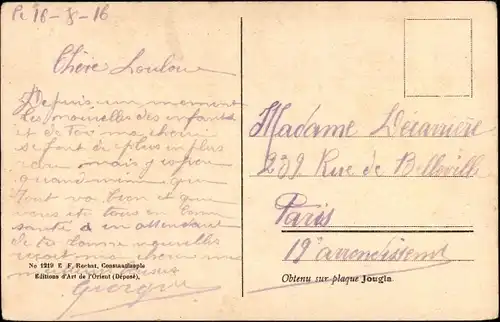 Le 18-8-16
Chère Loulou
Depuis un moment
les nouvelles des enfants
et de toi ma chérie
se font de plus en plus
rare mais j'espère
quand même que
tout va bien et que
vous êtes tous en bonne
santé & en attendant
de tes bonnes nouvelles
Georges
Madame
239 Rue de Belleville
Paris
19e arrondissement
No 1219 E. F. Rochat, Constantinople
Editions d'Art de l'Orient (Déposé),
Obtenu sur plaque Jougla